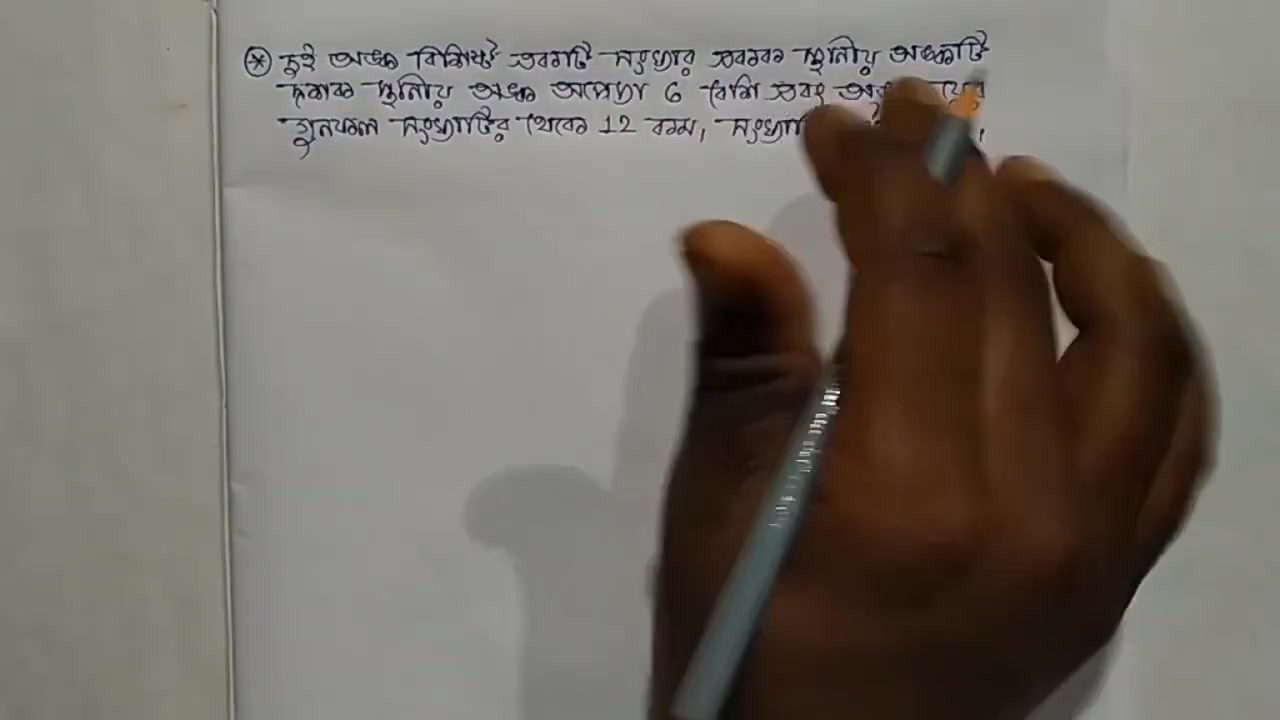 দুই অঙ্ক বিশিষ্ট একটি সংখ্যার একক স্থানীয় অঙ্কটি
দশক স্থানীয় অঙ্ক অপেক্ষা 6 বেশি এবং
গুনফল সংখ্যাটির থেকে 12 কম,